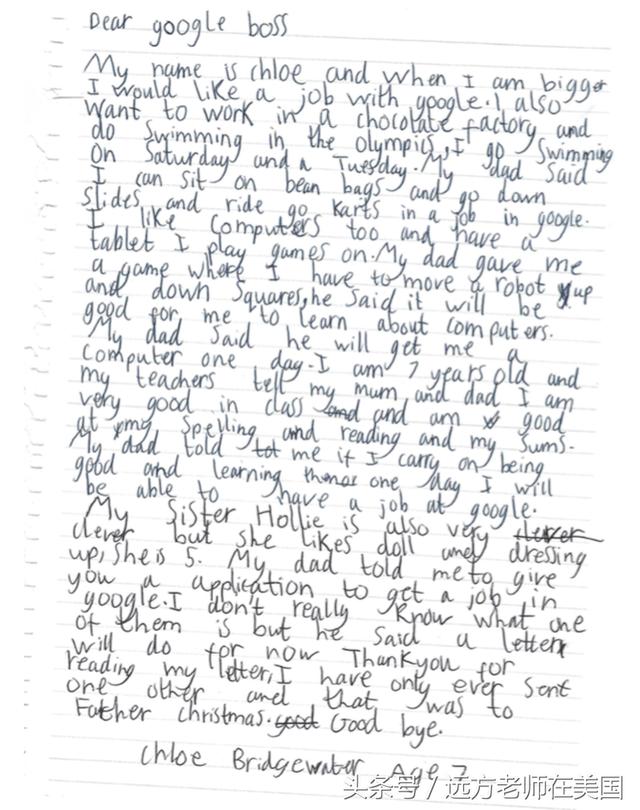 Dear google boss
My name is chloe and when I am bigger
I would like a job with google. I also
want to work in a chocolate factory and
do swimming in the olympics, I go Swimming
on Saturday and a Tuesday. My dad said
I can sit on bean bags and go down
slides and ride go karts in a job in google.
I like computers too and have a
tablet I play games on. My dad gave me
a game where I have to move a robot up
and down squares, he said it will be
good for me to learn about computers.
My dad said he will get me a
computer one day. I am 7 years old and
my teachers tell my mum and dad I am
very good in class and and am good
at my spelling and reading and my sums.
My dad told me if I carry on being
good and learning one day I will
be able to have a job at google.
My Sister Hollie is also very clever
clever but she likes doll and dressing
up, she is 5. My dad told me to give
you a application to get a job in
google. I don't really know what one
of them is but he said a letter
will do for now Thankyou for
reading my letter, I have only ever sent
one other and that was to
Father christmas. good Good bye.
Chloe Bridgewater Age 7
头条号 / 远方老师在美国